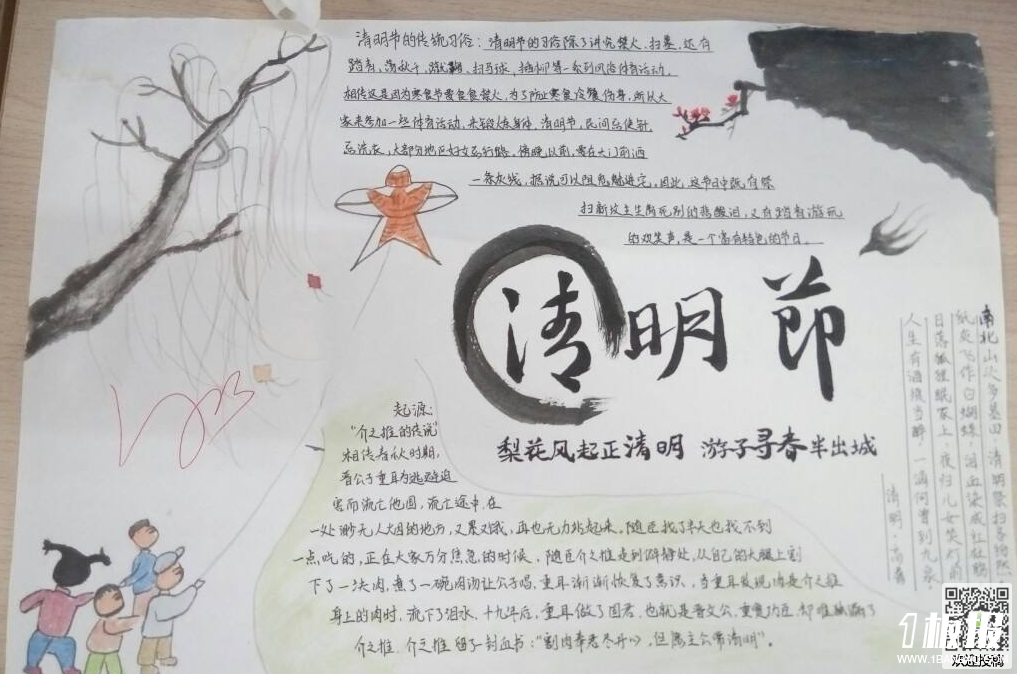 清明节的传统习俗：清明节的习俗除了讲究禁火、扫墓，还有
踏青、荡秋千、蹴鞠、打马球、插柳等一系列风俗体育活动。
相传这是因为寒食节要寒食禁火，为了防止寒食冷餐伤身，所以大
家来参加一些体育活动，来锻炼身体。清明节，民间忌使针，
忌洗衣，大部分地区妇女忌行路。傍晚以前，要在大门前洒
一条灰线，据说可以阻鬼魅进宅。因此，这节日中既有祭
扫新坟生生离死别的悲酸泪，又有踏青游玩
的欢笑声，是一个富有特色的节日。
清明節
梨花风起正清明 游子寻春半出城
起源：
“介之推的传说”
相传春秋时期，
晋公子重耳为逃避迫
害而流亡他国，流亡途中，在
一处渺无人烟的地方，又累又饿，再也无力站起来。随臣找了半天也找不到
一点吃的，正在大家万分焦急的时候，随臣介之推走到僻静处，从自己的大腿上割
下了一块肉，煮了一碗肉汤让公子喝，重耳渐渐恢复了意识，当重耳发现肉是介之推
身上的肉时，流下了泪水。十九年后，重耳做了国君，也就是晋文公，重赏功臣，却唯独漏了
介之推，介之推留了封血书：“割肉奉君尽丹心，但愿主公常清明”。
南北山头多墓田，清明祭扫各纷然
纸灰飞作白蝴蝶，泪血染成红杜鹃
日落狐狸眠冢上，夜归儿女笑灯前
人生有酒须当醉，一滴何曾到九泉
清明·高翥
1板报
WWW.1BANBAO.COM
欢迎投稿